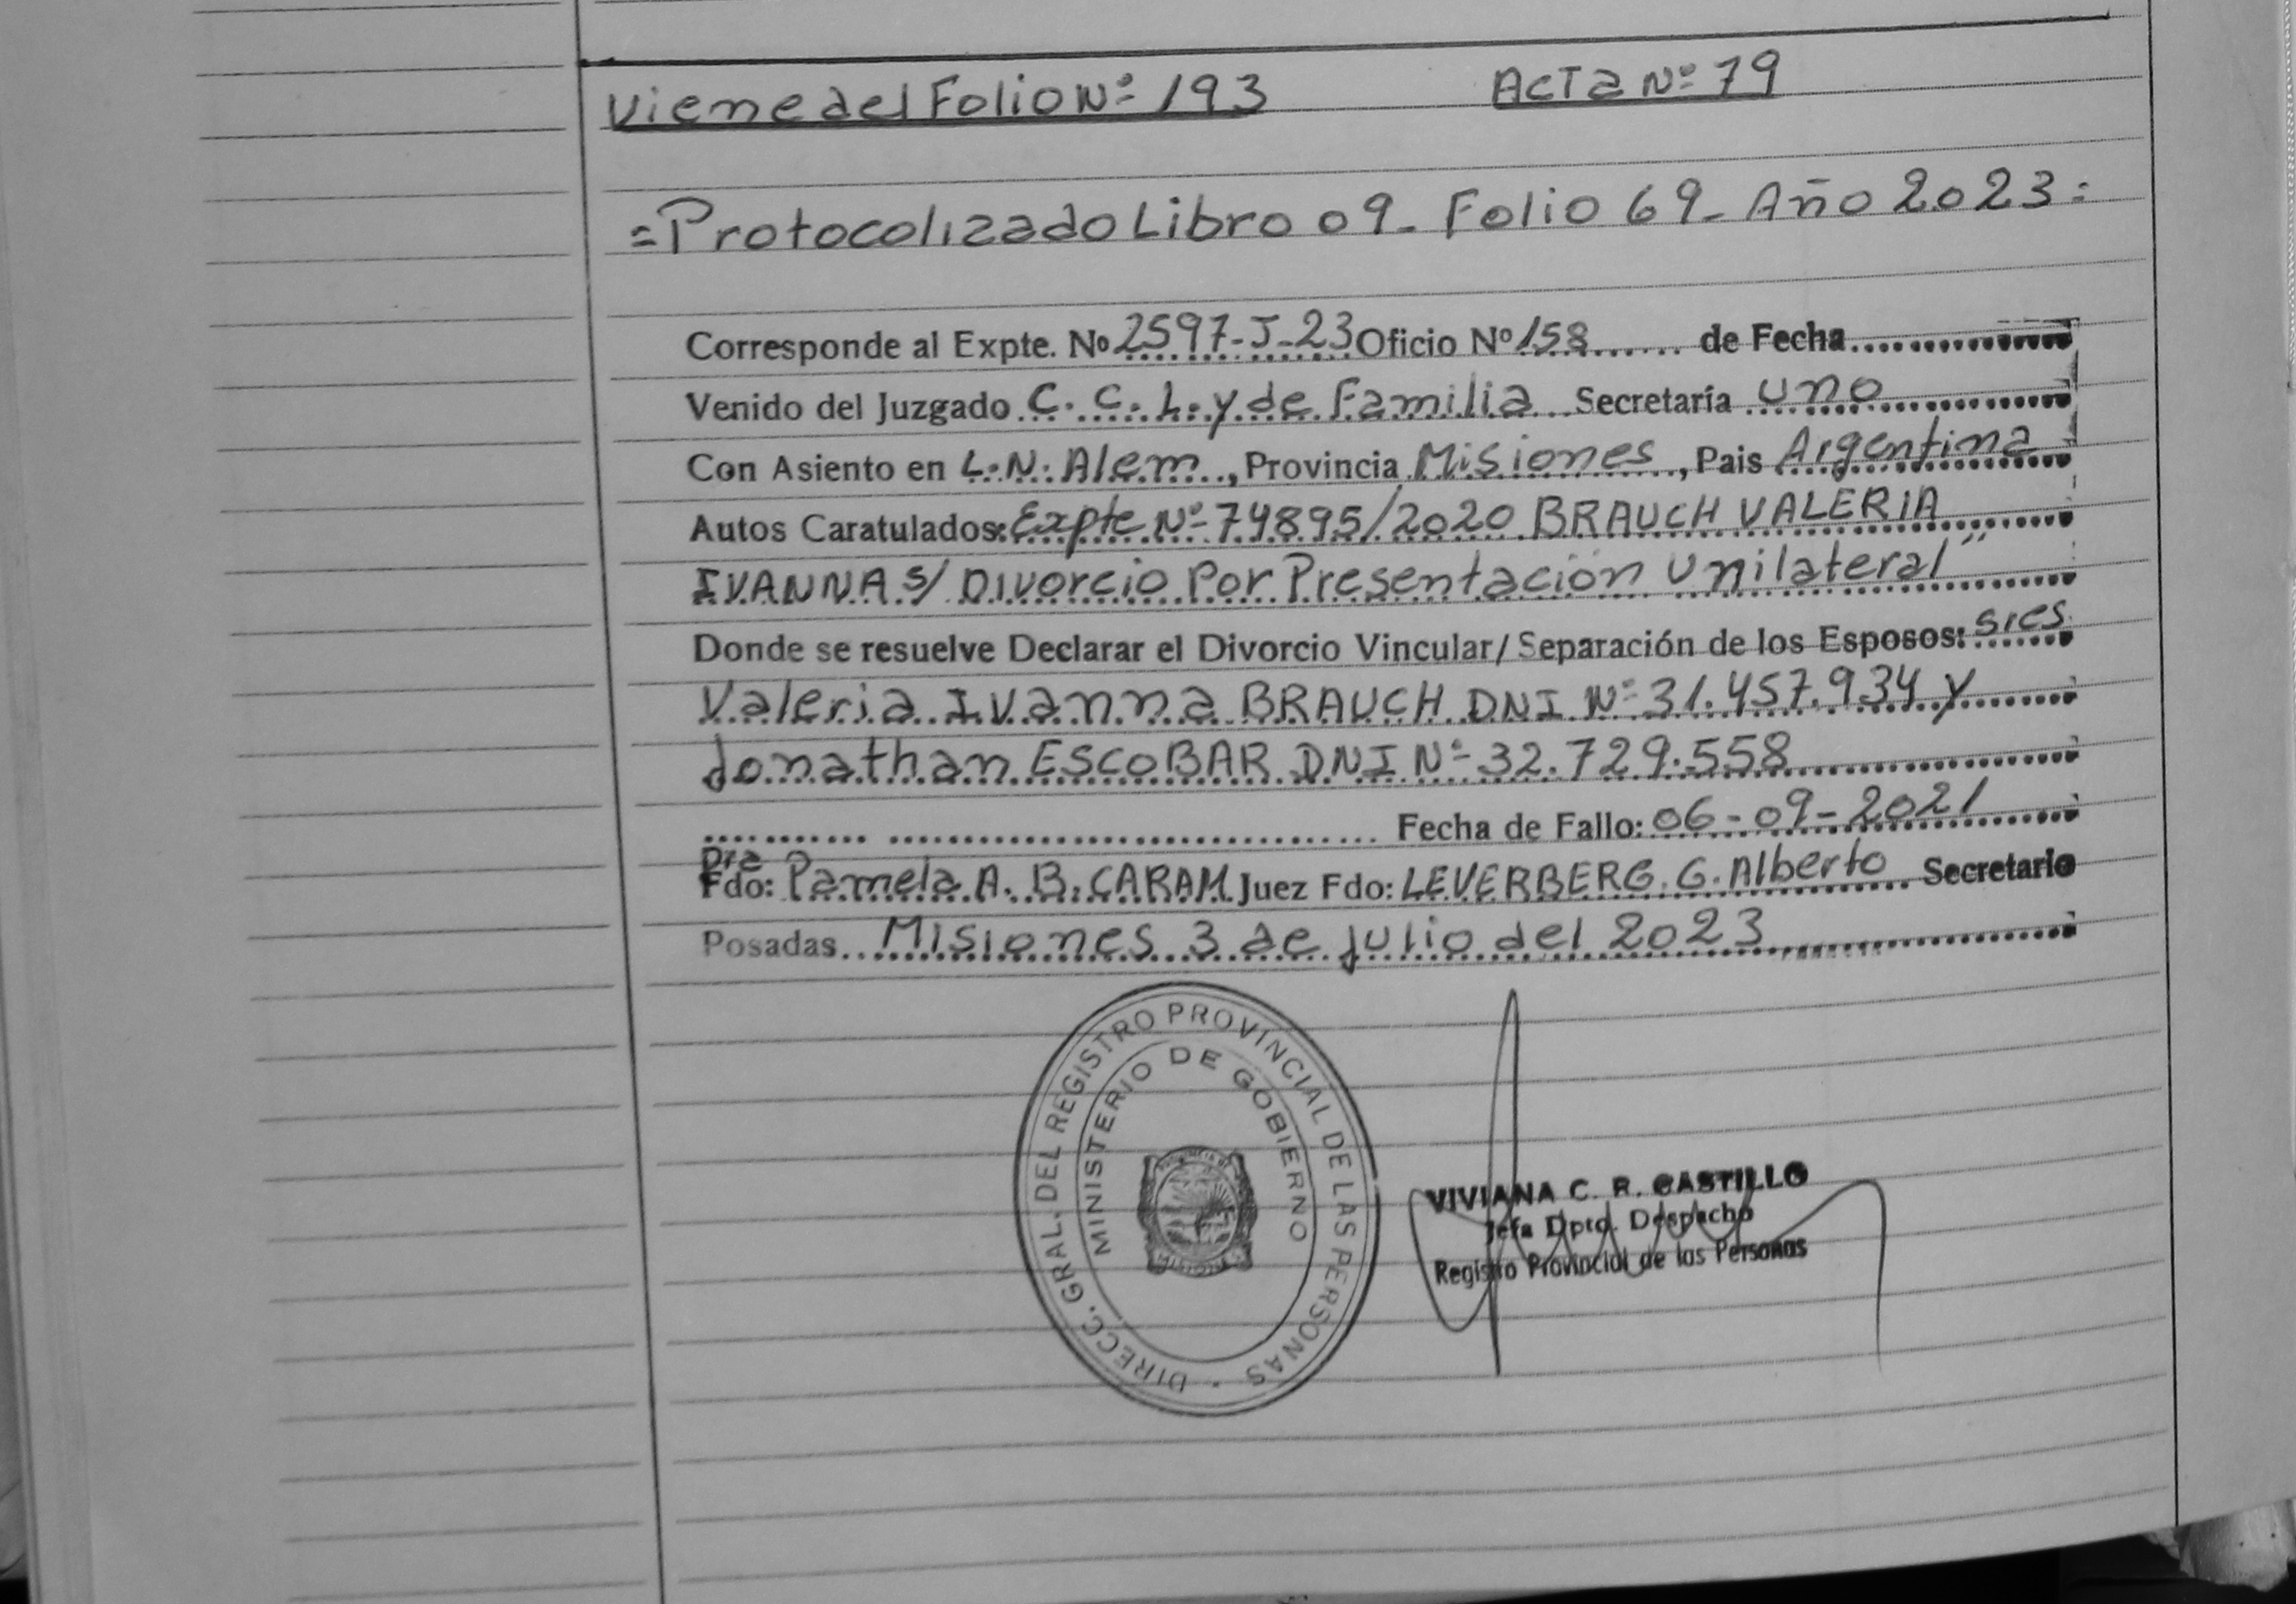 Viene del Folio Nº 193 ACTA Nº 79
=Protocolizado Libro 09_ Folio 69_ Año 2023=
Corresponde al Expte. Nº 2597-J-23 Oficio Nº 158 de Fecha
Venido del Juzgado C. C. L. y de Familia Secretaría uno
Con Asiento en L.N. Alem, Provincia Misiones, Pais Argentina
Autos Caratulados: Expte Nº 74895/2020 BRAUCH VALERIA
IVANNA s/ Divorcio Por Presentación Unilateral"
Donde se resuelve Declarar el Divorcio Vincular/Separación de los Esposos: sres
Valeria Ivanna BRAUCH DNI Nº 31.457.934 y
Jonathan ESCOBAR DNI Nº 32.729.558
Fecha de Fallo: 06-09-2021
Dra
Fdo: Pamela A. B. CARAM Juez Fdo: LEVERBERG. G. Alberto Secretario
Posadas Misiones 3 de julio del 2023
DIRECC. GRAL. DEL REGISTRO PROVINCIAL DE LAS PERSONAS
MINISTERIO DE GOBIERNO
VIVIANA C. R. CASTILLO
Jefa Dpto. Despacho
Registro Provincial de las Personas